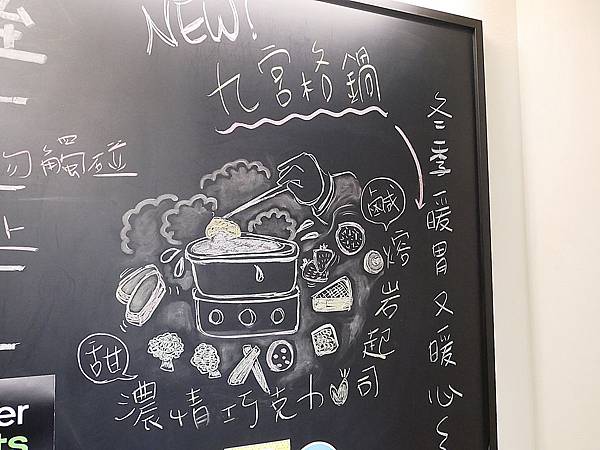 NEW!
九宮格鍋
勿觸碰
冬季暖胃又暖心
鹹
熔岩起司
甜
濃情巧克力
er
ts